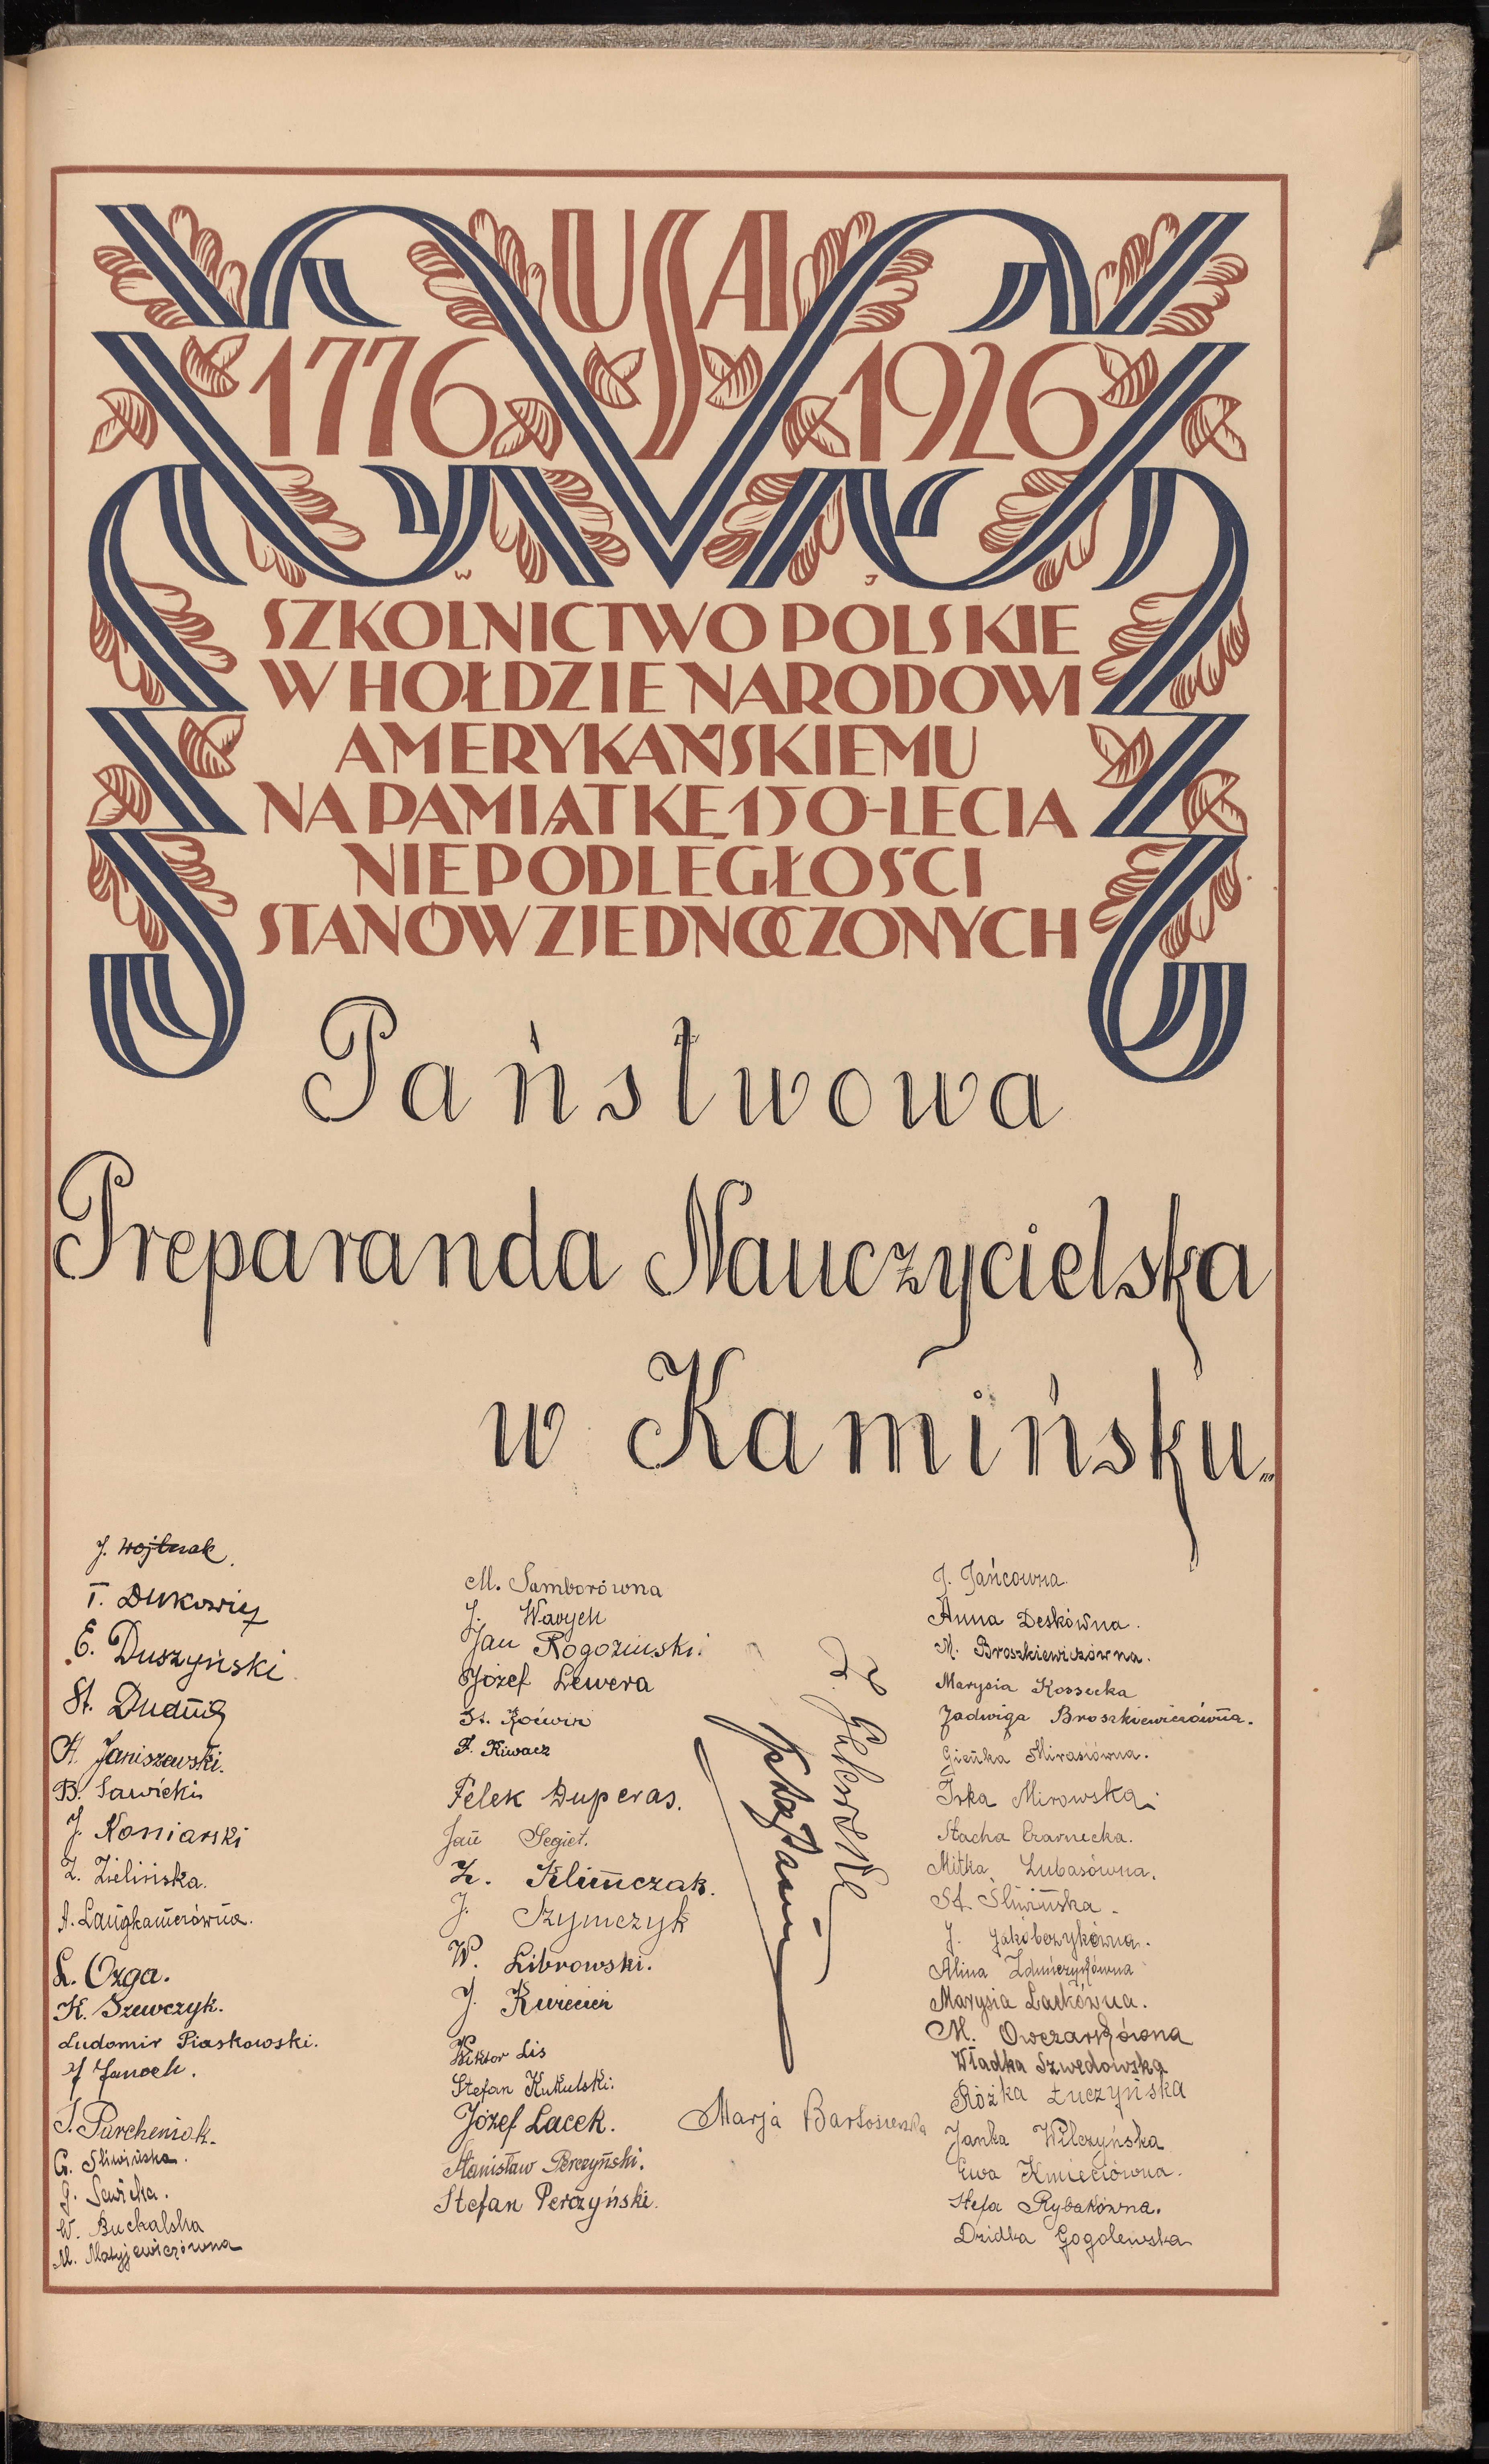 USA
1776 1926
W J
SZKOLNICTWO POLSKIE
W HOŁDZIE NARODOWI
AMERYKAŃSKIEMU
NA PAMIĄTKĘ 150-LECIA
NIEPODLEGŁOŚCI
STANÓW ZJEDNOCZONYCH
Państwowa
Preparanda Nauczycielska
w Kamińsku
J. Wojtczak.
T. Dukowicz
E. Duszyński
St. Duding
A. Janiszewski.
B. Sawicki
J. Koniarski
Z. Zielińska.
A. Langhamerówna.
L. Ozga.
K. Szewczyk.
Ludomir Piaskowski.
J Janoch.
J. Parcheniak.
G. Śliwińska.
J. Sawicka.
W. Buchalska
M. Matyjewiczówna
M. Samborówna
J. Wawych
Jan Rogoziński.
Józef Lewera
St.
F. Kiwacz
Felek Duperas.
Jan Segiet.
Z. Klimczak.
J. Szymczyk
W. Librowski.
J. Kwiecień
Wiktor Lis
Stefan Kukulski.
Józef Lacek.
Stanisław Perczyński.
Stefan Perczyński.
Marja
J. Jańcówna.
Anna Deskówna.
M. Broszkiewiczówna.
Marysia Kossecka
Jadwiga Broszkiewiczówna.
Gieńka Mirasiówna.
Irka Mirowska.
Stacha Czarnecka.
Mitka Lubasówna.
St. Śliwińska.
J. Jakóbczykówna.
Alina Zduńczykówna
Marysia Laskówna.
M. Owczarkówna
Władka Szwedowska
Rózka Łuczyńska
Janka Wilczyńska
Ewa Kmieciówna.
Stefa Rybakówna.
Dzidka Gogolewska